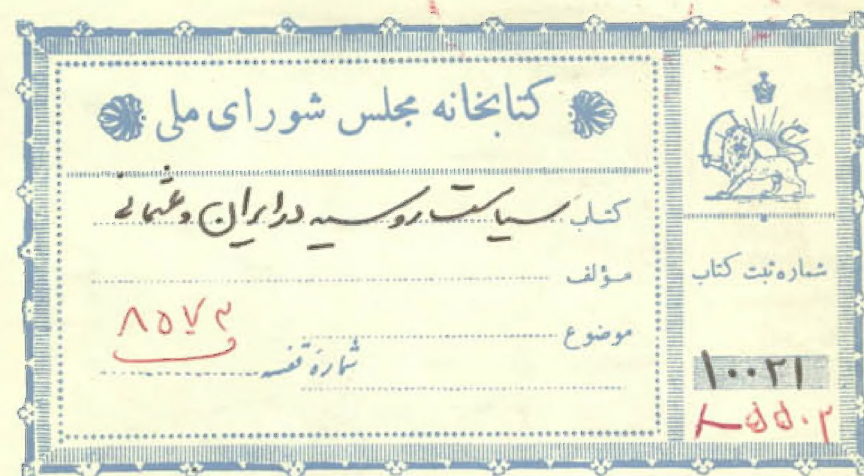 کتابخانه مجلس شورای ملی
کتاب سیاست روسیه در ایران و عثمانی
مؤلف
موضوع
شماره قفسه
۸۵۷۳
شماره ثبت کتاب
۱۰۰۲۱